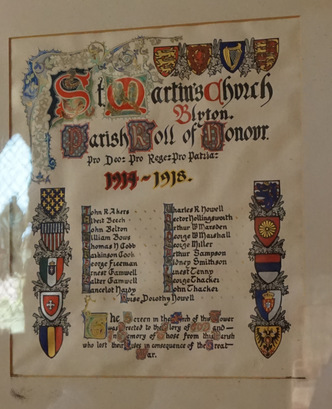 St Martin's Church
Blyton.
Parish Roll of Honour.
Pro Deo: Pro Rege: Pro Patria:
1914 ~ 1918.
John R Akers Charles R Howell
Albert Beech Hector Hollingsworth
John Belton Arthur W Marsden
William Bows George W Marshall
Thomas H Cobb George Miller
Parkinson Cook Arthur Sampson
George Freeman Sidney Smithson
Ernest Gamwell Ernest Tenny
Walter Gamwell George Thacker
Lancelot Hardy John Thacker
Dorothy Howell
The Screen in the Arch of the Tower
was erected to the Glory of GOD and
in Memory of those from this Parish
who lost their Lives in consequence of the Great
War.